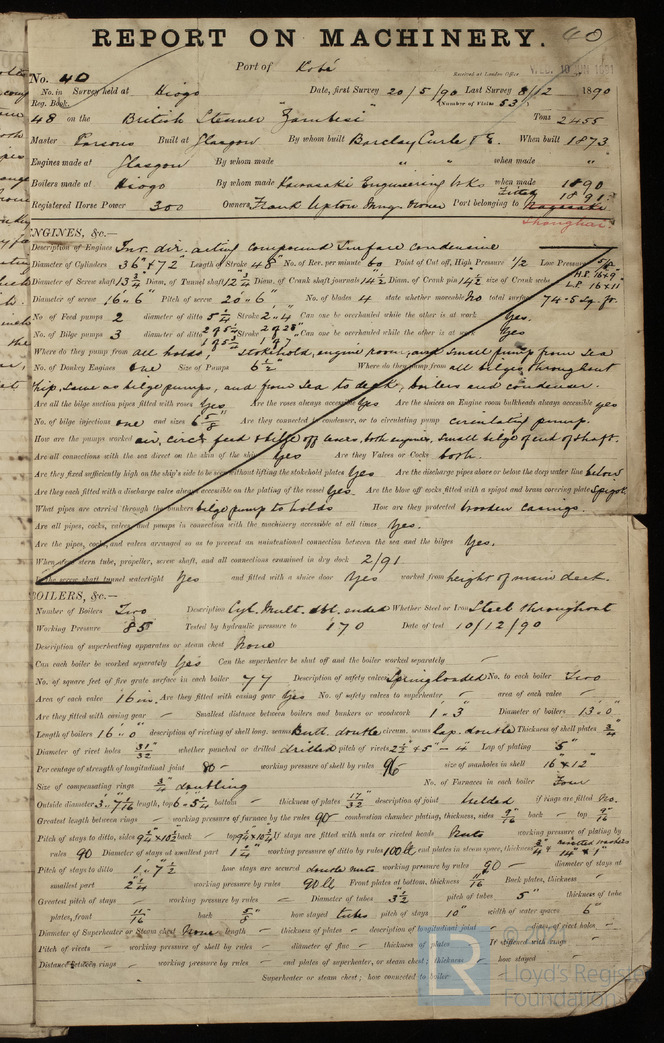 REPORT ON MACHINERY. 40
Port of Kobé
Received at London Office WED. 10 JUN 1891
No. 40
No. in Survey held at Hiogo Date, first Survey 20/5/90 Last Survey 8/12 1890
Reg. Book. (Number of Visits 53)
48 on the British Steamer "Zambesi" Tons 2455
Master Parsons Built at Glasgow By whom built Barclay Curle & Co. When built 1873
Engines made at Glasgow By whom made " " when made "
Boilers made at Hiogo By whom made Kawasaki Engineering Wks when made 1890
Fitted 1891
Registered Horse Power 300 Owners, Frank Upton Mng. Owner Port belonging to Nagasaki
Shanghai
ENGINES, &c.—
Description of Engines Inv. dir. acting compound Surface condensing
Diameter of Cylinders 36" & 72" Length of Stroke 48" No. of Rev. per minute 60 Point of Cut off, High Pressure 1/2 Low Pressure 5/8
Diameter of Screw shaft 13 3/4 Diam. of Tunnel shaft 12 3/4 Diam. of Crank shaft journals 14 1/2 Diam. of Crank pin 14 1/2 size of Crank webs H.P. 16×9" L.P. 16×11
Diameter of screw 16"6" Pitch of screw 20"6" No. of blades 4 state whether moveable No total surface 74-5 sq. ft.
No. of Feed pumps 2 diameter of ditto 5 1/4 Stroke 2"4 Can one be overhauled while the other is at work Yes.
No. of Bilge pumps 3 diameter of ditto 2 of 5 1/4" 1 of 5 3/4 Stroke 2 of 28" 1 of 7 Can one be overhauled while the other is at work Yes
Where do they pump from all holds, stokehold, engine room, and small pump from sea
No. of Donkey Engines one Size of Pumps 6 1/2" Where do they pump from all bilges throughout
ship, same as bilge pumps, and from sea to deck, boilers and condenser.
Are all the bilge suction pipes fitted with roses Yes Are the roses always accessible Yes Are the sluices on Engine room bulkheads always accessible yes
No. of bilge injections one and sizes 6 5/8" Are they connected to condenser, or to circulating pump circulating pump.
How are the pumps worked air, circ, feed & bilge off levers, both engines, small bilge off end of shaft.
Are all connections with the sea direct on the skin of the ship Yes Are they Valves or Cocks both.
Are they fixed sufficiently high on the ship's side to be seen without lifting the stokehold plates Yes Are the discharge pipes above or below the deep water line below
Are they each fitted with a discharge valve always accessible on the plating of the vessel Yes Are the blow off cocks fitted with a spigot and brass covering plate Spigot
What pipes are carried through the bunkers bilge pump to holds How are they protected wooden casings.
Are all pipes, cocks, valves, and pumps in connection with the machinery accessible at all times Yes.
Are the pipes, cocks, and valves arranged so as to prevent an unintentional connection between the sea and the bilges Yes.
When were stern tube, propeller, screw shaft, and all connections examined in dry dock 2/91
Is the screw shaft tunnel watertight Yes and fitted with a sluice door Yes worked from height of main deck.
BOILERS, &c.—
Number of Boilers Two Description Cyl. Mult. dbl. ended Whether Steel or Iron Steel throughout
Working Pressure 85 Tested by hydraulic pressure to 170 Date of test 10/12/90
Description of superheating apparatus or steam chest None
Can each boiler be worked separately Yes Can the superheater be shut off and the boiler worked separately —
No. of square feet of fire grate surface in each boiler 77 Description of safety valves Spring loaded No. to each boiler Two
Area of each valve 16 ins. Are they fitted with easing gear Yes No. of safety valves to superheater — area of each valve —
Are they fitted with easing gear — Smallest distance between boilers and bunkers or woodwork 1"3 Diameter of boilers 13"0
Length of boilers 16"0 description of riveting of shell long. seams Butt double circum. seams lap double Thickness of shell plates 3/4
Diameter of rivet holes 31/32 whether punched or drilled drilled pitch of rivets Lap of plating 5"
Percentage of strength of longitudinal joint 80 — working pressure of shell by rules 96 size of manholes in shell 16×12
Size of compensating rings 3/4 doubling No. of Furnaces in each boiler Four
Outside diameter 3"7 7/16 length, top 6"5 1/4 bottom — thickness of plates 17/32 description of joint welded if rings are fitted No.
Greatest length between rings — working pressure of furnace by the rules 90 combustion chamber plating, thickness, sides 9/16 back — top 9/16
Pitch of stays to ditto, sides 9 1/4×10 1/2 back — top 9 1/4×10 1/2 If stays are fitted with nuts or riveted heads Nuts working pressure of plating by
rules 90 Diameter of stays at smallest part 1 1/4" working pressure of ditto by rules 100 lb end plates in steam space, thickness 3/4 & riveted washers 14" × 1"
Pitch of stays to ditto 1"7 1/2 how stays are secured double nuts working pressure by rules 90 — diameter of stays at
smallest part 2 1/4 working pressure by rules 90 lb Front plates at bottom, thickness 11/16 Back plates, thickness —
Greatest pitch of stays — working pressure by rules — Diameter of tubes 3 1/2 pitch of tubes 5" thickness of tube
plates, front 11/16 back 5/8 how stayed tubes pitch of stays 10" width of water spaces 6"
Diameter of Superheater or Steam chest None length — thickness of plates — description of longitudinal joint — diam. of rivet holes —
Pitch of rivets — working pressure of shell by rules — diameter of flue — thickness of plates — If stiffened with rings —
Distance between rings — working pressure by rules — end plates of superheater, or steam chest; thickness — how stayed —
Superheater or steam chest; how connected to boiler —
LR
Lloyd's Register
Foundation